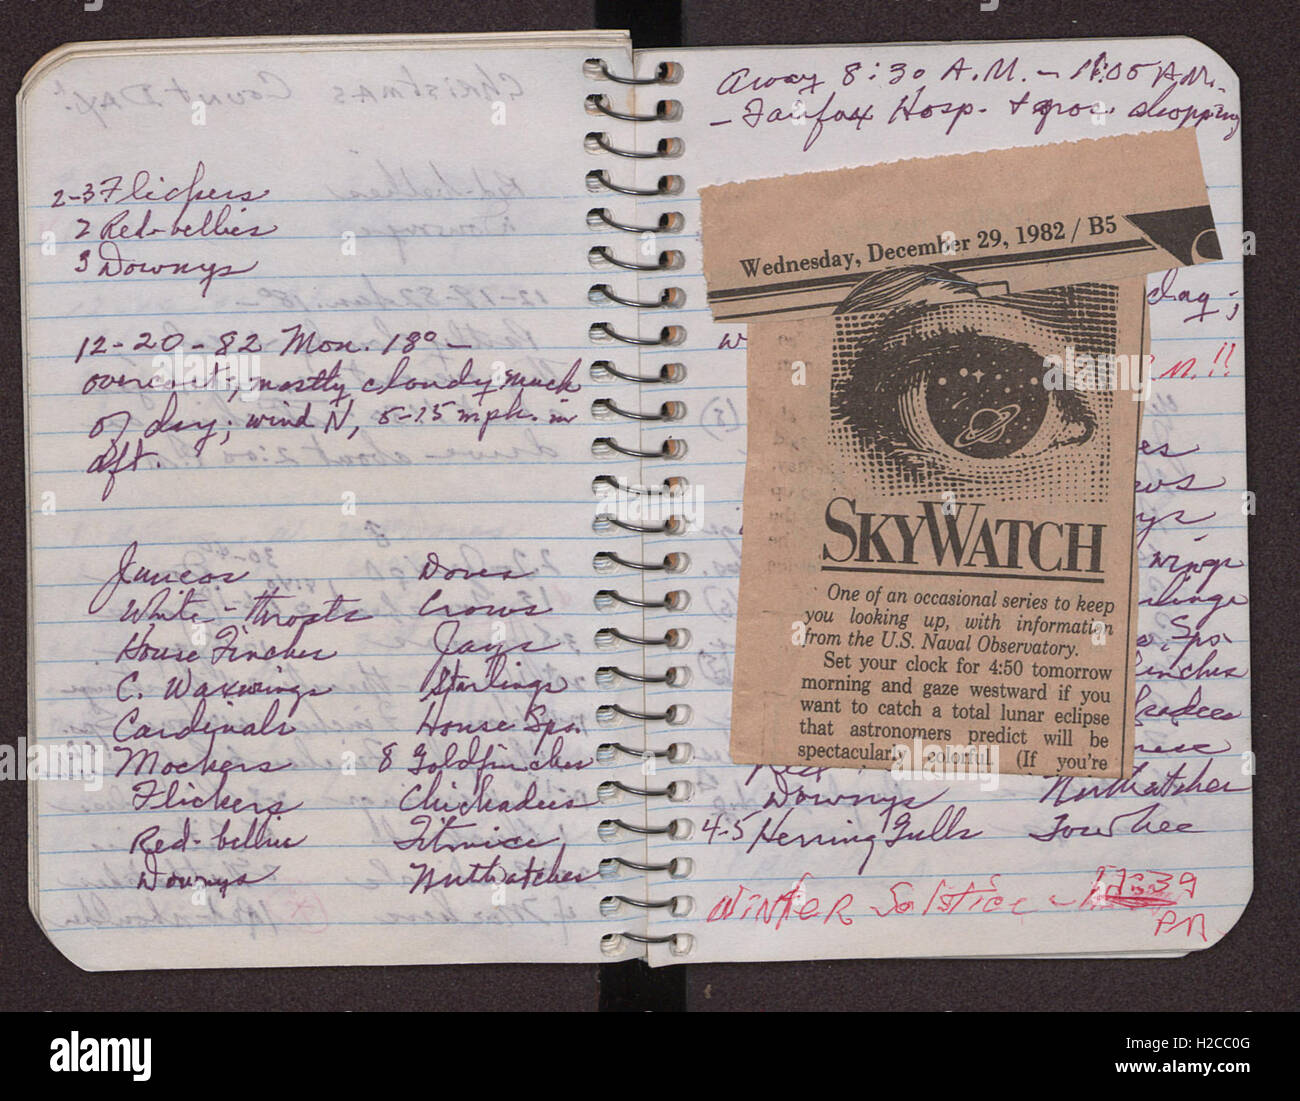 2-3 Flickers
2 Red-bellies
3 Downys
12-20-82 Mon. 18° -
overcast; mostly cloudy much
of day; wind N, 5-15 mph. in
aft.
Juncos Doves
White-throats Crows
House Finches Jays
C. Waxwings Starlings
Cardinals House Sps.
Mockers 8 Goldfinches
Flickers Chickadees
Red-bellies Titmice
Downys Nuthatches
Away 8:30 A.M. - 11:05 A.M.
- Fairfax Hosp. + groc. shopping
Wednesday, December 29, 1982 / B5
SKYWATCH
One of an occasional series to keep
you looking up, with information
from the U.S. Naval Observatory.
Set your clock for 4:50 tomorrow
morning and gaze westward if you
want to catch a total lunar eclipse
that astronomers predict will be
spectacularly colorful. (If you're
wings
Sps.
Downys Nuthatches
4-5 Herring Gulls Towhee
WINTER SOLSTICE -
PM
CHRISTMAS COUNT DAY!
alamy
Image ID: H2CC0G
www.alamy.com